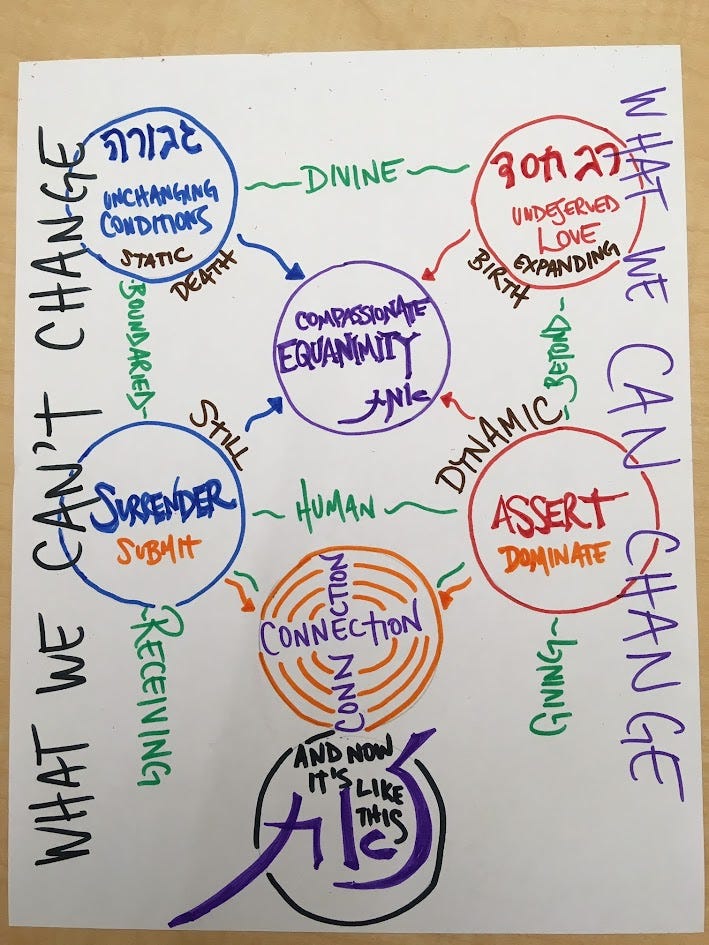 WHAT WE CAN'T CHANGE
WHAT WE CAN CHANGE
גבורה
UNCHANGING
CONDITIONS
STATIC
DEATH
DIVINE
רב חסד
UNDESERVED
LOVE
EXPANDING
BIRTH
BOUNDARIED
COMPASSIONATE
EQUANIMITY
אמת
BEYOND
STILL
DYNAMIC
SURRENDER
SUBMIT
HUMAN
ASSERT
DOMINATE
CONNECTION
CONNECTION
RECEIVING
GIVING
AND NOW
IT'S LIKE
THIS